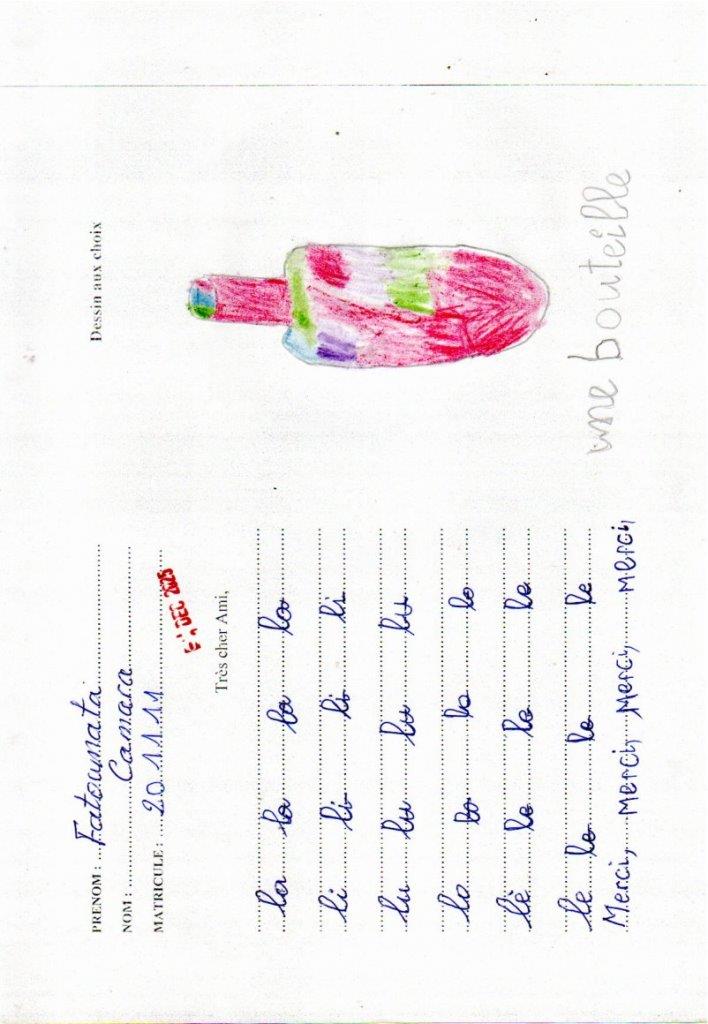 PRENOM : Fatoumata
NOM : Camara
MATRICULE : 20.11.11
DEC 2025
Très cher Ami,
la la la la
li li li li
lu lu lu lu
lo lo lo lo
lè le le le
le le le le
Merci, Merci, Merci, Merci, merci
Dessin aux choix
une bouteille